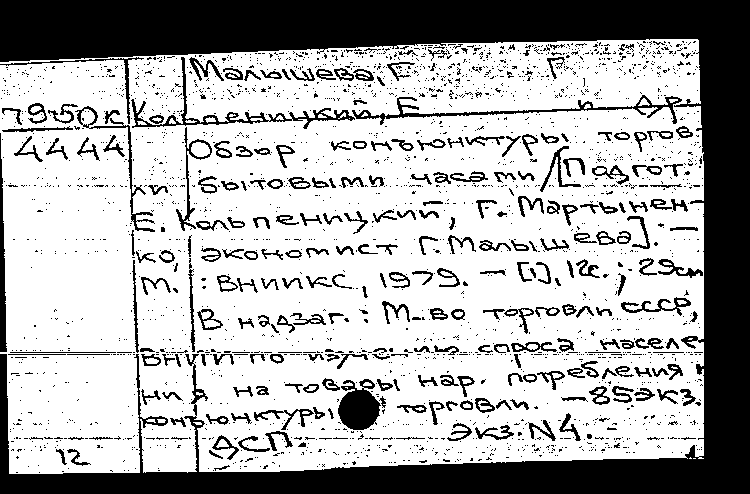 Малышева, Г Г
79-50к Кольпеницкий, Е и др.
4444 Обзор конъюнктуры торгов-
ли бытовыми часами / [Подгот.
Е. Кольпеницкий, Г. Мартынен-
ко, экономист Г. Малышева]. —
М. : ВНИИКС, 1979. — [1], 12с. ; 29см
В надзаг. : М-во торговли СССР,
ВНИИ по изучению спроса населе-
ния на товары нар. потребления и
конъюнктуры торговли. — 85экз.
ДСП. Экз. N4.
12